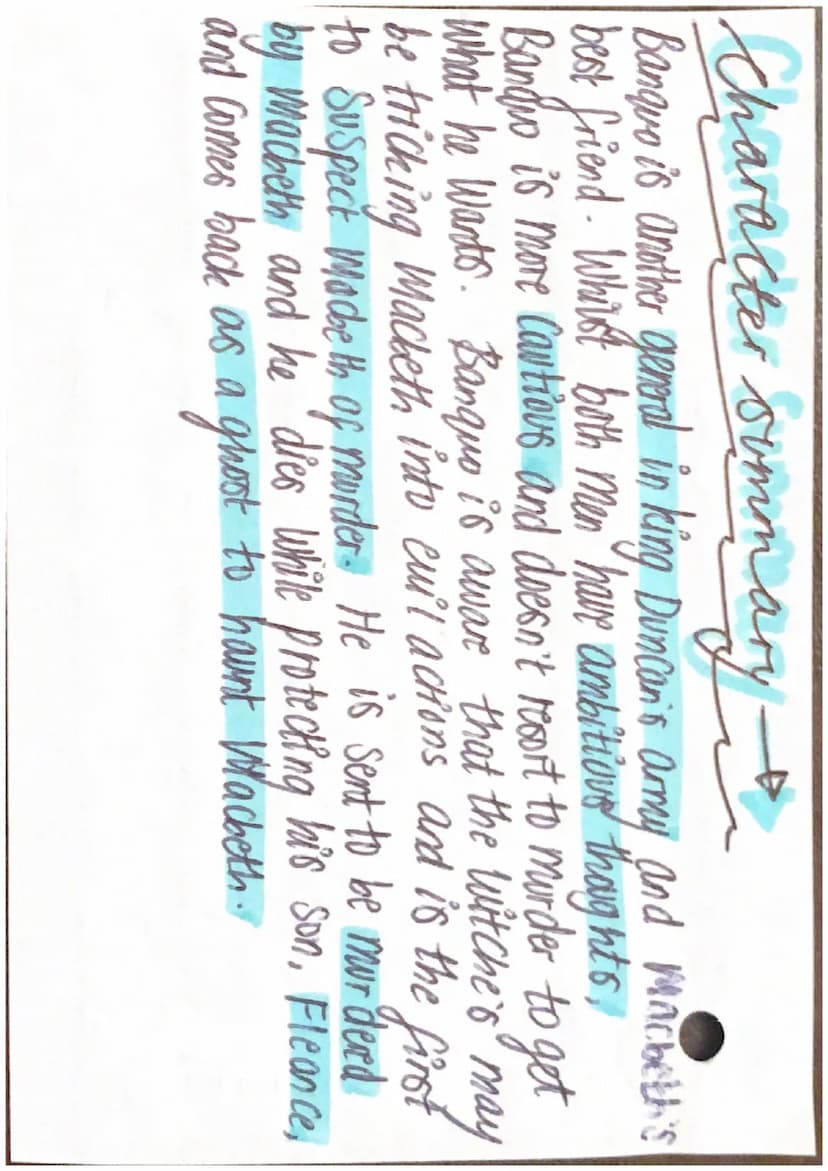 Character Summary →
Banquo is another general in king Duncan's army and Macbeth's
best friend. Whilst both men have ambitious thoughts,
Banquo is more cautious and doesn't resort to murder to get
what he wants. Banquo is aware that the witche's may
be tricking Macbeth into evil actions and is the first
to suspect Macbeth of murder. He is sent to be murdered
by Macbeth and he dies while protecting his son, Fleance,
and comes back as a ghost to haunt Macbeth.